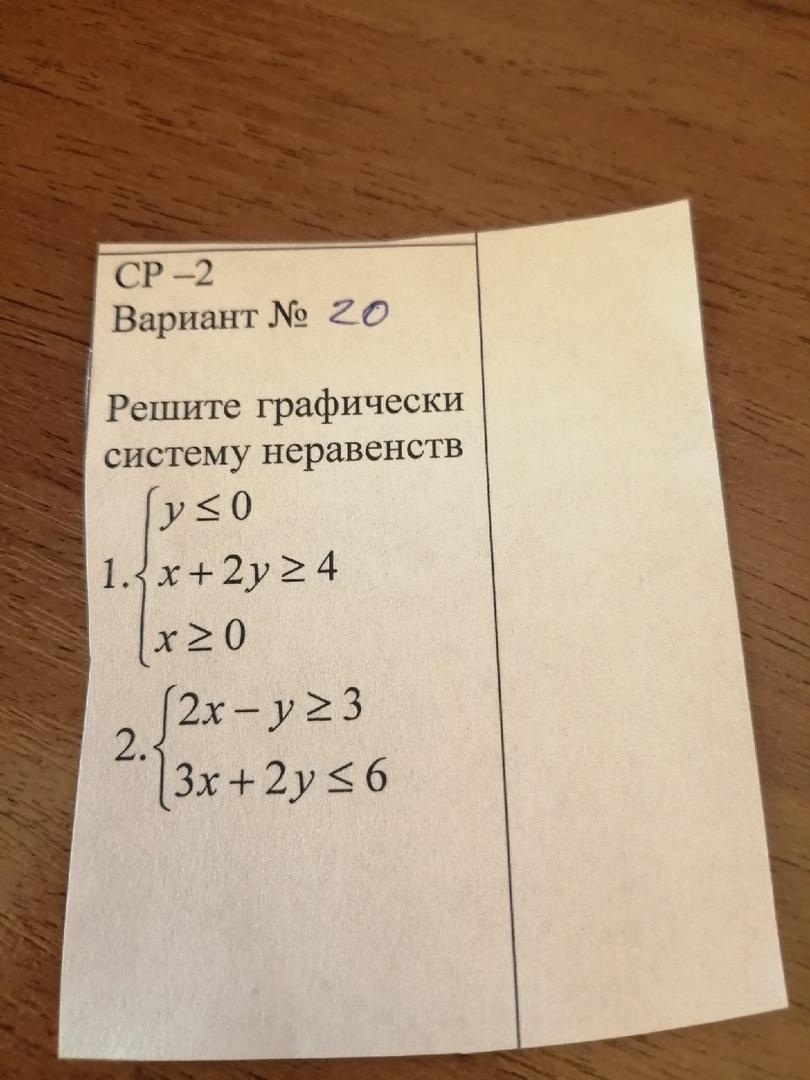 СР –2
Вариант № 20
Решите графически
систему неравенств
y ≤ 0
1. { x + 2y ≥ 4
x ≥ 0
2x – y ≥ 3
2. {
3x + 2y ≤ 6